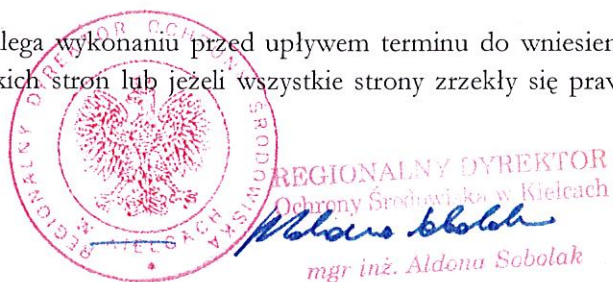 lega wykonaniu przed upływem terminu do wniesien
kich stron lub jeżeli wszystkie strony zrzekły się praw
REGIONALNY DYREKTOR OCHRONY ŚRODOWISKA
W KIELCACH
REGIONALNY DYREKTOR
Ochrony Środowiska w Kielcach
Aldona Sobolak
mgr inż. Aldona Sobolak